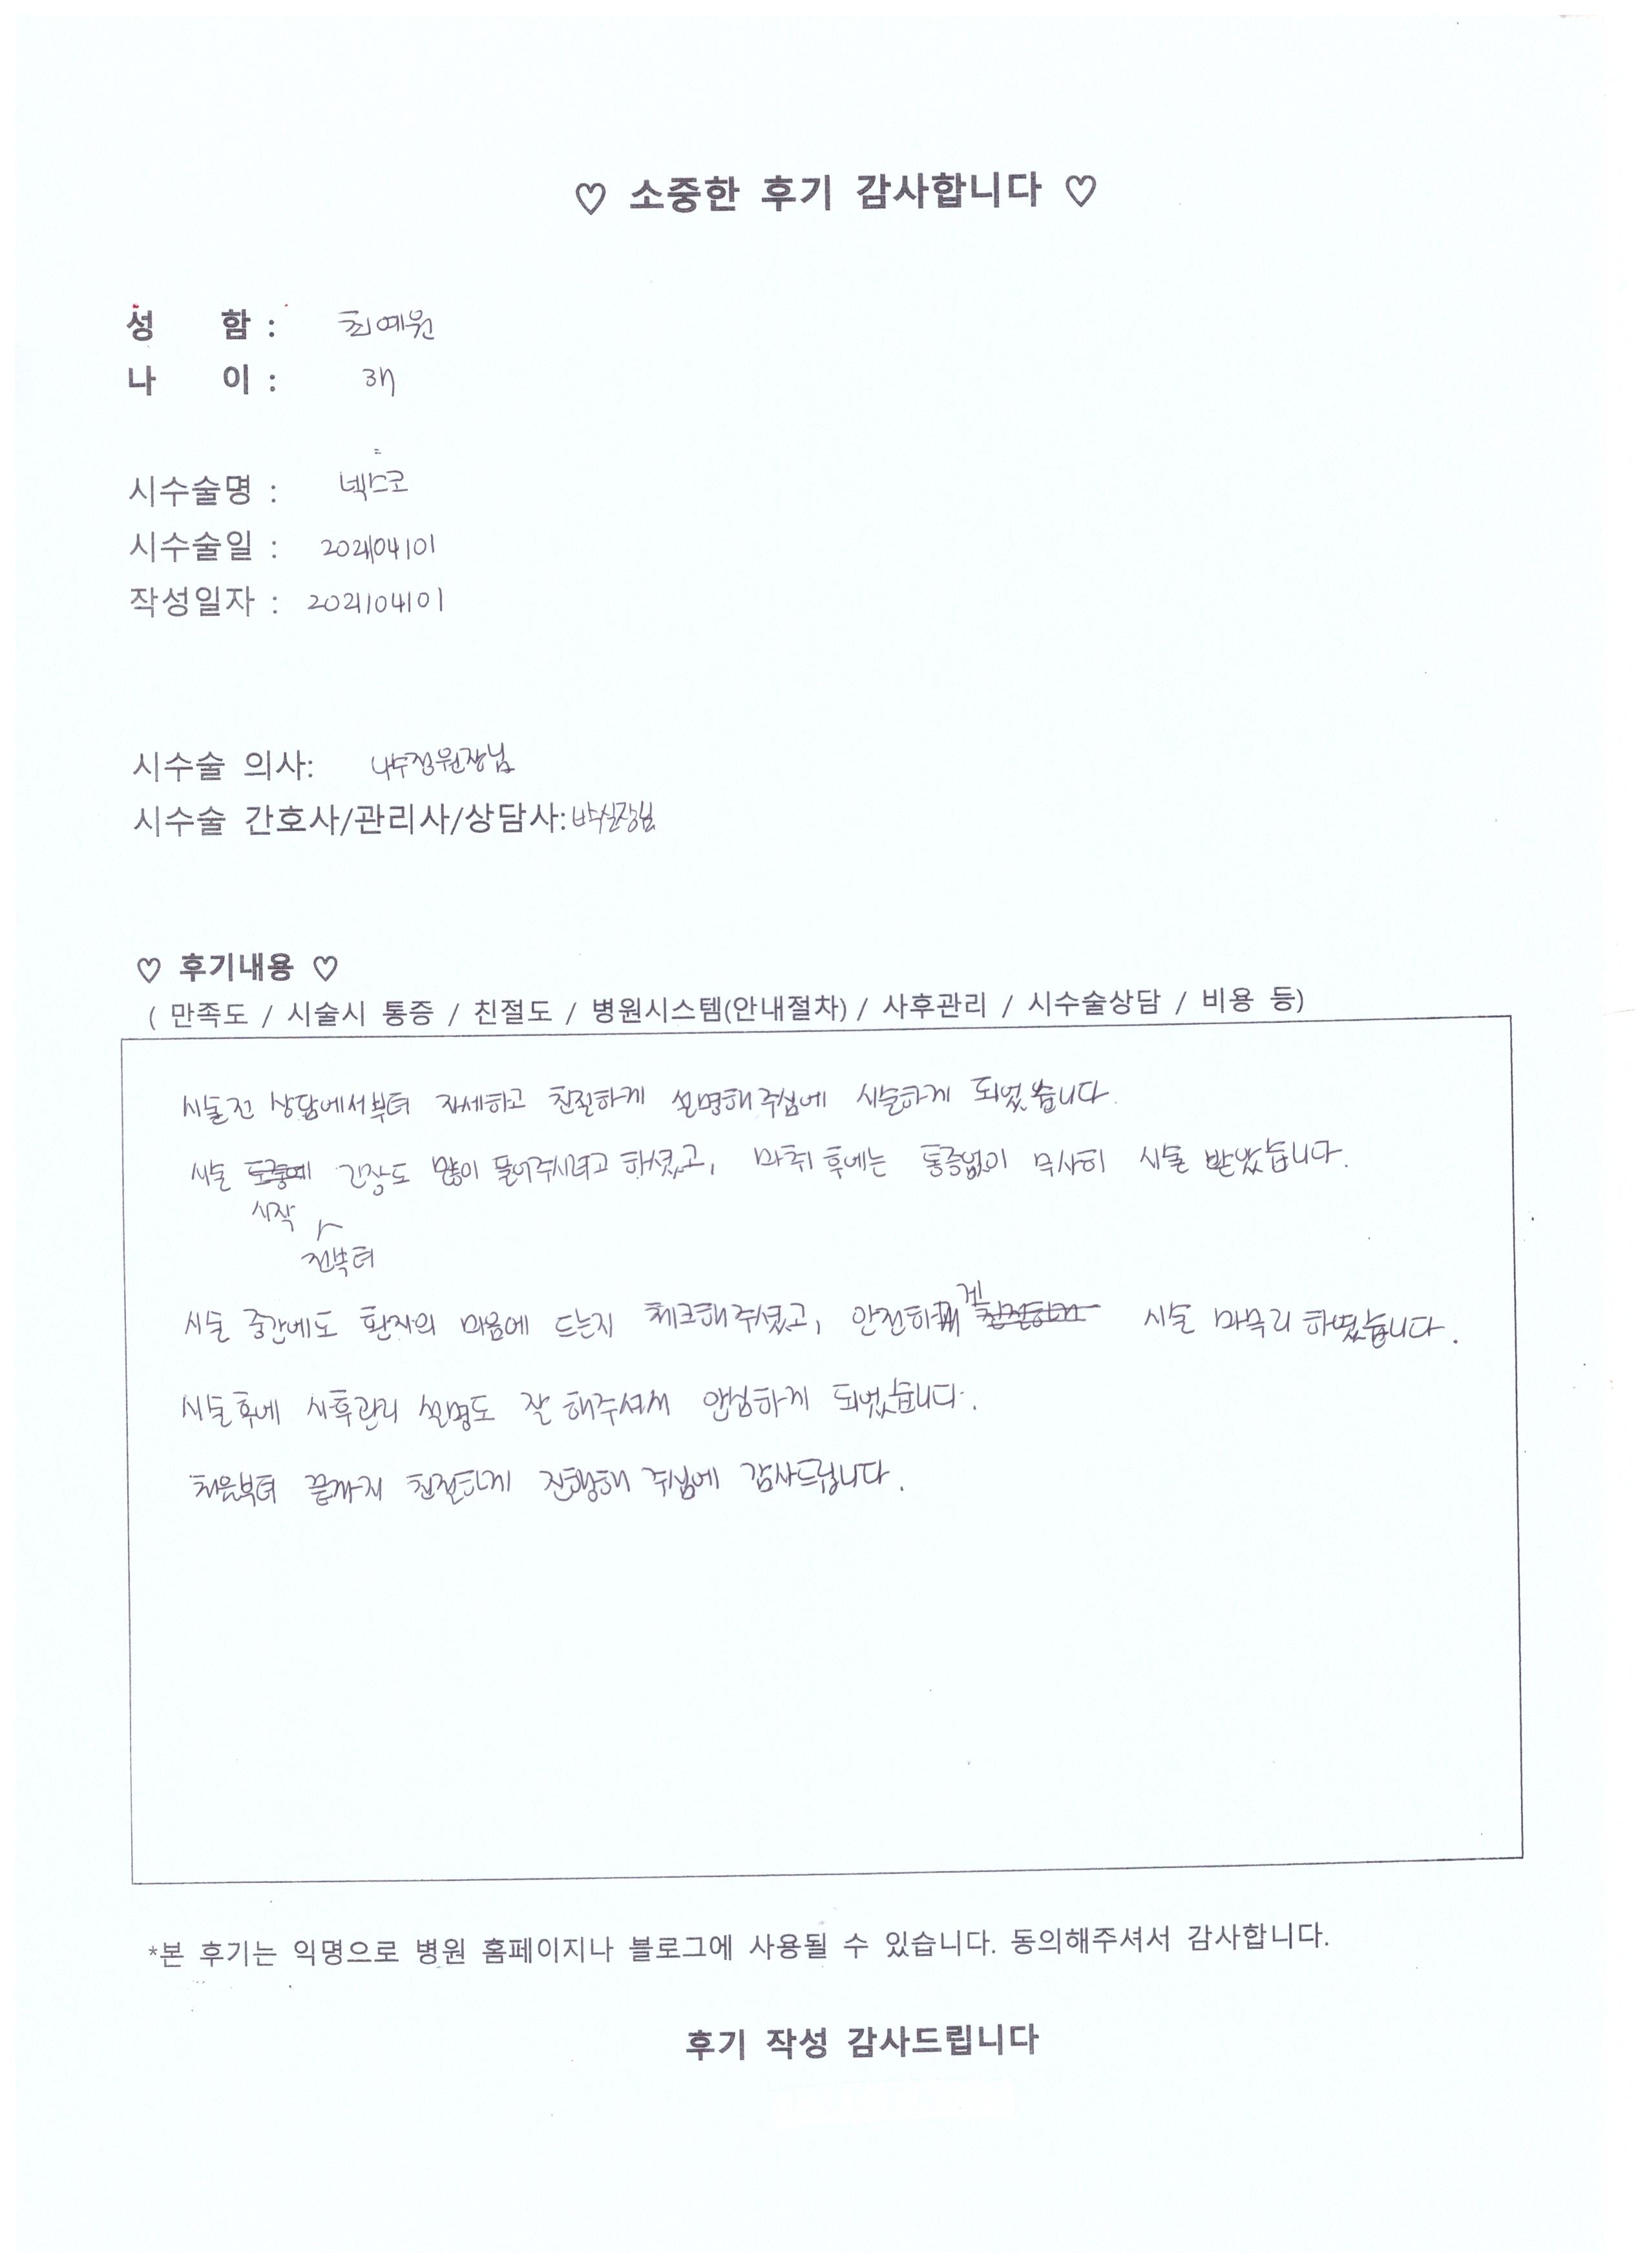 ♡ 소중한 후기 감사합니다 ♡
성 함 : 최예원
나 이 : 37
시수술명 : 넥스코
시수술일 : 20210401
작성일자 : 20210401
시수술 의사: 나수정원장님
시수술 간호사/관리사/상담사: 박실장님
♡ 후기내용 ♡
( 만족도 / 시술시 통증 / 친절도 / 병원시스템(안내절차) / 사후관리 / 시수술상담 / 비용 등)
시술전 상담에서부터 자세하고 친절하게 설명해주심에 시술하게 되었습니다.
시술 긴장도 많이 풀어주시려고 하셨고, 마취 후에는 통증없이 무사히 시술 받았습니다.
시작
전부터
시술 중간에도 환자의 마음에 드는지 체크해주셨고, 안전하게 시술 마무리 하였습니다.
시술후에 사후관리 설명도 잘 해주셔서 안심하게 되었습니다.
처음부터 끝까지 친절하게 진행해 주심에 감사드립니다.
*본 후기는 익명으로 병원 홈페이지나 블로그에 사용될 수 있습니다. 동의해주셔서 감사합니다.
후기 작성 감사드립니다